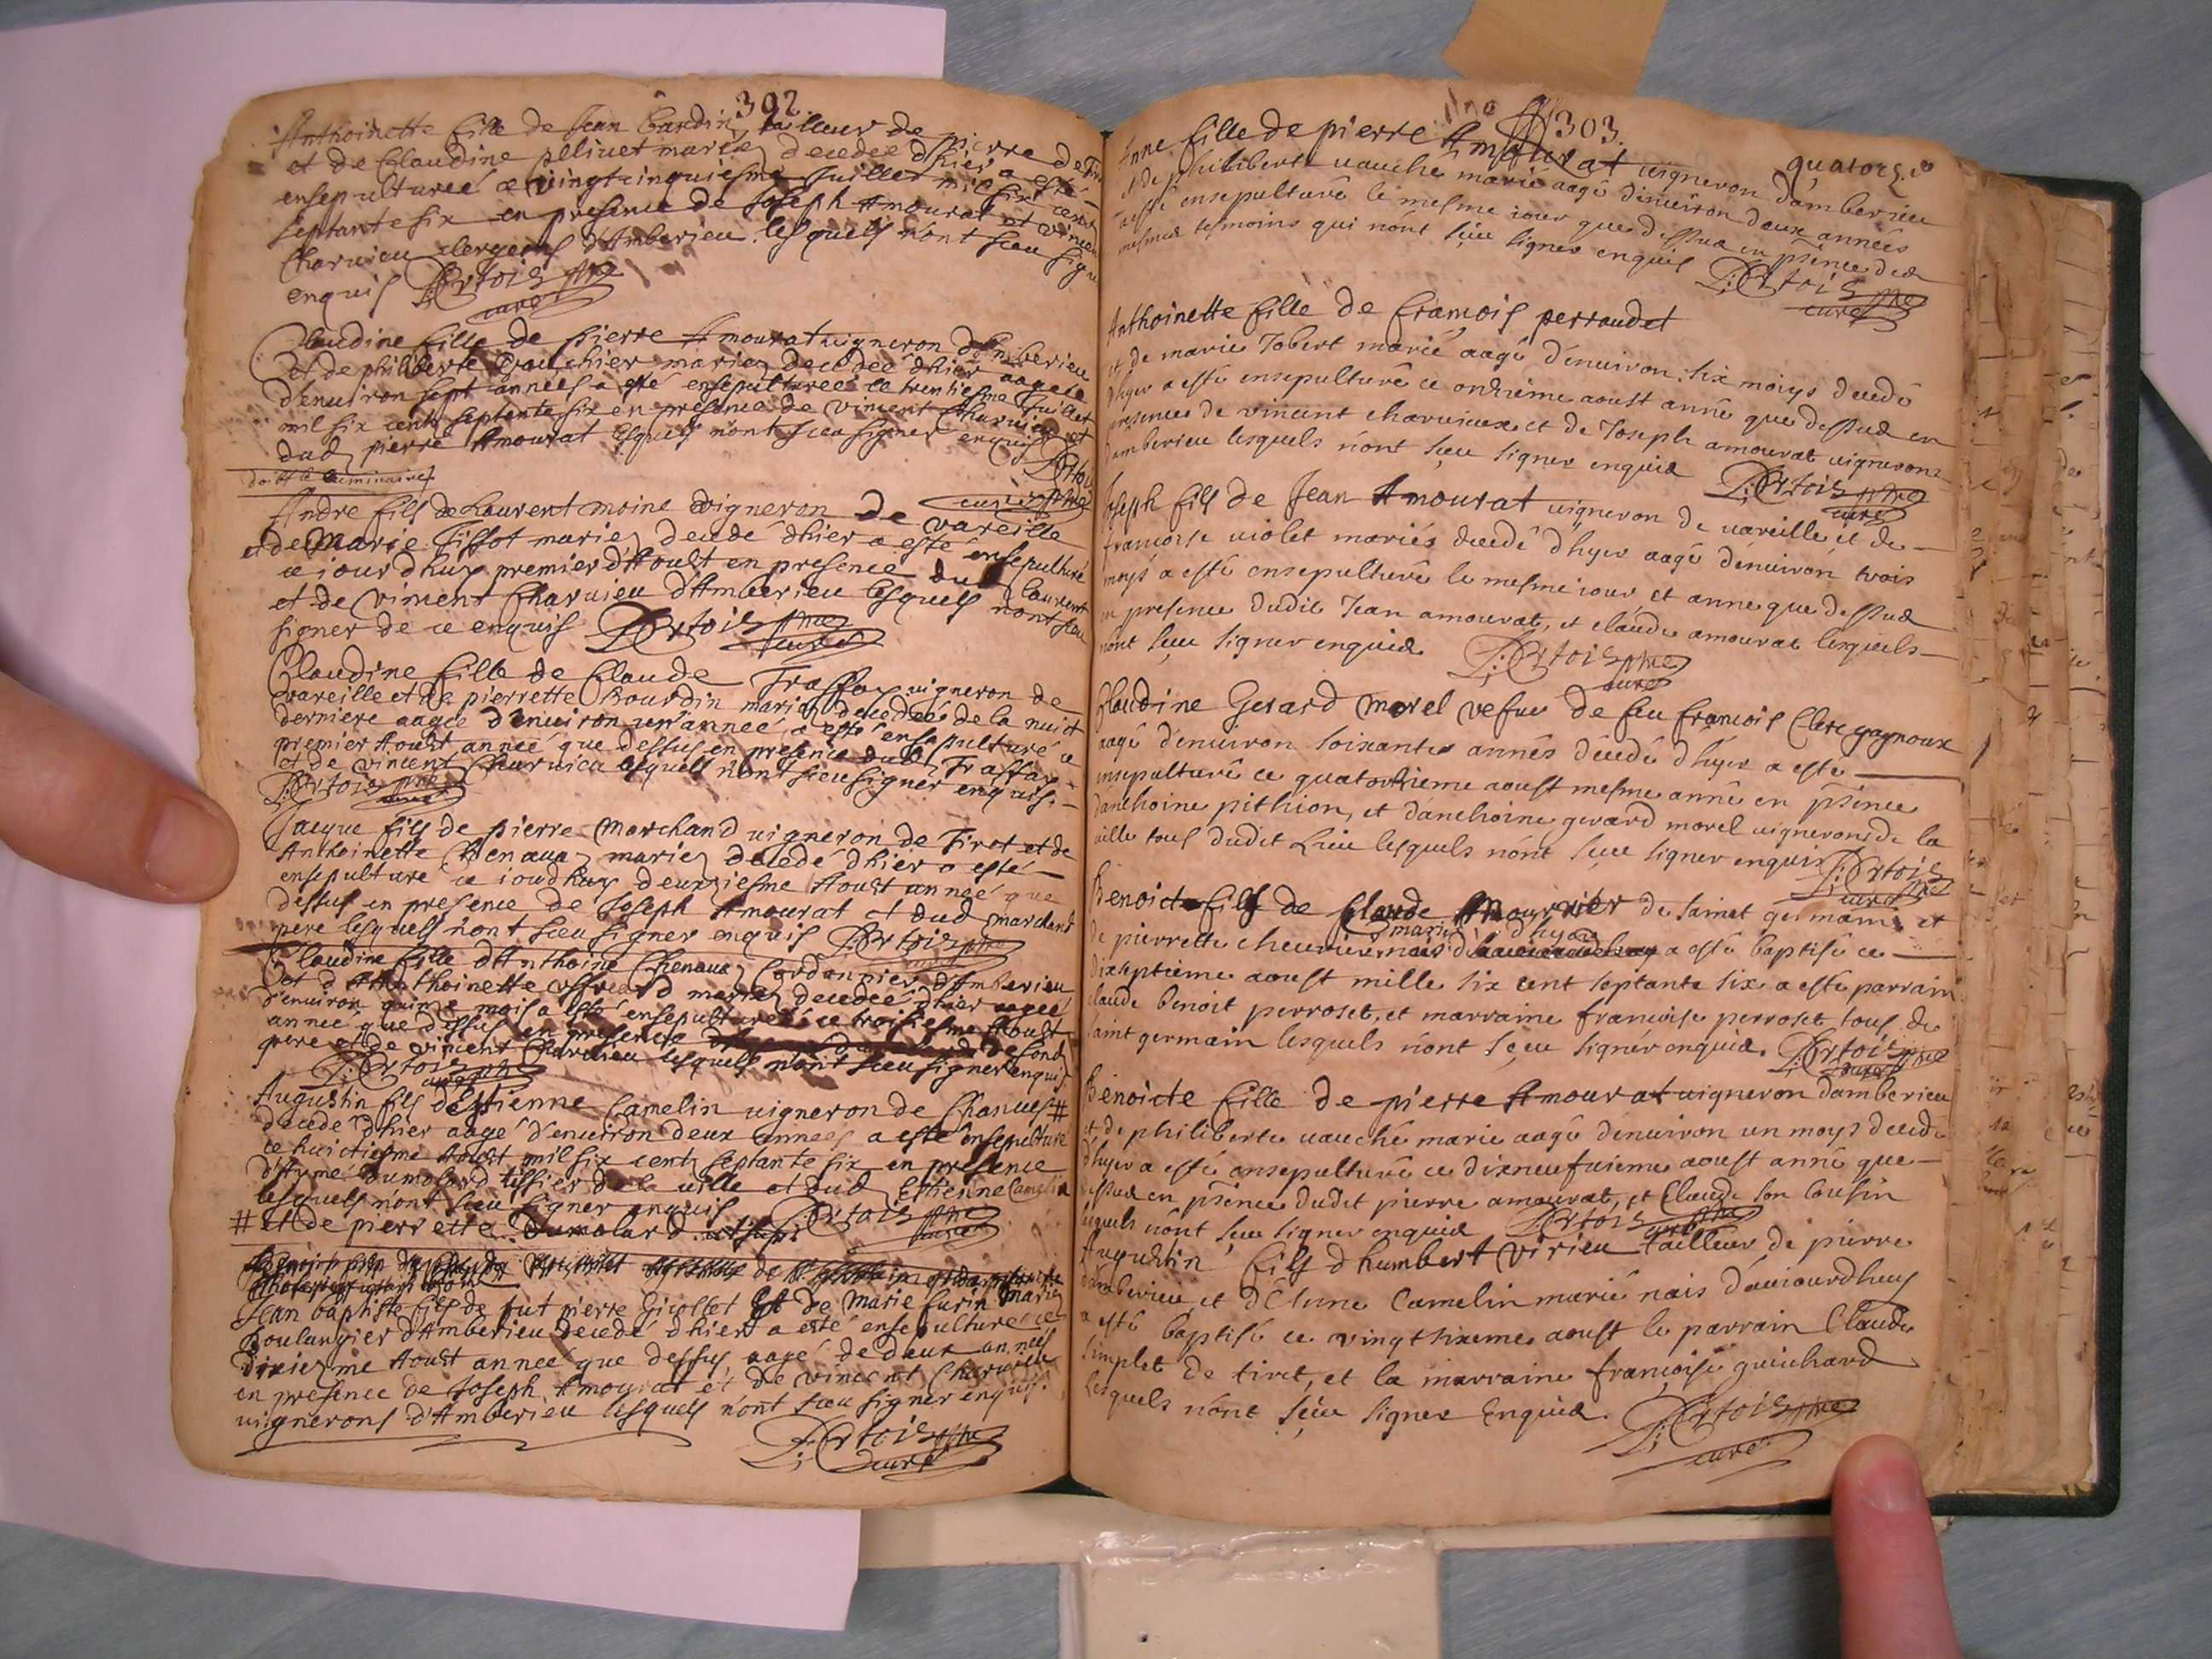 302
Anthoinette fille de Jean Bardin tailleur de pierre de
et de Claudine pelinet mariez decedée dhier a esté
ensepulturée ce vingtcinquiesme Juillet mil six cent
septante six en presence de Joseph Amourat et vincen
Charuieu clergeons d'Amberieu lesquels n'ont sceu sign
enquis P: Ortois pbre
curé
Claudine fille de pierre Amourat uigneron d'Amberieu
et de philiberte mariez decedée dhier aagée
d'enuiron sept années a esté ensepulturée ce trentiesme Juillet
mil six cents septante six en presence de vincent Charuieu et
dud pierre Amourat lesquels n'ont sceu signer enquis
P: Ortois
doit le luminaire
curé pbre
Andre fils de Laurent moine vigneron de vareille
et de Marie Tissot mariez decedé dhier a esté ensepulturé
ce iour dhuy premier d'Aoust en presence dud Laurent
et de vincent Charuieu d'Amberieu lesquels n'ont sceu
signer de ce enquis P: Ortois pbre
curé
Claudine fille de Claude Traffay uigneron de
vareille et de pierrette Bourdin mariez decedée de la nuict
derniere aagée d'enuiron un année a esté ensepulturé ce
premier Aoust année que dessus en presence dud Traffay
et de vincent Charuieu lesquels n'ont sceu signer enquis.
P: Ortois pbre
curé
Jacque fils de pierre Marchand uigneron de Tiret et de
Anthoinette Chenaua mariez decedé dhier a esté
ensepulturé ce iourdhuy deuxiesme Aoust année que
dessus en presence de Joseph Amourat et dud marchand
pere lesquels n'ont sceu signer enquis P: Ortois pbre
Claudine fille d'Anthoine Chenaua Cordonnier d'Amberieu
et d'Anthoinette mariez decedée dhier aagée
d'enuiron quinze mois a esté ensepulturée ce troisiesme Aoust
année que dessus en presence
pere et de vincent Charuieu lesquels n'ont sceu signer enquis
P: Ortois pbre
curé
Augustin fils d'Estienne Camelin uigneron de Chanues #
decedé dhier aagé d'enuiron deux années a esté ensepulturé
ce huictiesme Aoust mil six cent septante six en presence
d'Aymé dumolard tissier de la uille et dud Estienne Camelin
lesquels n'ont sceu signer enquis P: Ortois pbre
# et de pierrette Dumolard curé
Jean baptiste fils de fut pierre Gicollet et de Marie furin mariez
Boulangier d'Amberieu decedé dhier a esté ensepulturé ce
dixiezme Aoust année que dessus aagé de deux années
en presence de Joseph Amourat et de vincent Charuieu
uignerons d'Amberieu lesquels n'ont sceu signer enquis.
P: Ortois pbre
curé
303.
quatorze
Anne fille de pierre Amourat uigneron d'amberieu
et de philiberte uauché marié aagé d'enuiron deux années
a esté ensepulturé le mesme iour que dessus en pñce des
mesmes tesmoins qui n'ont sçeu signer enquis P: Ortois pbre
curé
Anthoinette fille de francois perraudet
et de marie Jobert marié aagé d'enuiron six moiys decedé
d'hyer a esté ensepulturé ce onzieme aoust anné que dessus en
presence de vincent charuieux et de Joseph amourat uignerons
d'amberieu lesquels n'ont sceu signer enquis P: Ortois pbre
curé
Joseph fils de Jean Amourat uigneron de uareille et de
francoise uiolet mariés decedé d'hyer aagé d'enuiron trois
moys a esté ensepulturé le mesme iour et anné que dessus
en presence dudit Jean amourat, et claude amourat lesquels
n'ont sceu signer enquis P: Ortois pbre
curé
Claudine Gerard morel vefue de feu francois Clerc gagnoux
aagé d'enuiron soixante annés decedé d'hyer a esté
ensepulturé ce quatorzieme aoust mesme anné en pñce
d'anthoine pithion, et d'anthoine gerard morel uignerons de la
uille tous dudit Lieu lesquels n'ont sceu signer enquis P: Ortois
curé pbre
Benoict fils de Claude Mourrier de sainct germain et
mariés d'hyer
de pierrette cheurier nais a esté baptisé ce
dixseptieme aoust mille six cent septante six a esté parrain
claude benoit perroset, et marraine francoise perroset tous de
saint germain lesquels n'ont sçeu signer enquis. P: Ortois pbre
curé
Benoicte fille de pierre Amourat uigneron d'amberieu
et de philiberte uauché marié aagé d'enuiron un moys decedé
d'hyer a esté ensepulturé ce dixneufuieme aoust anné que
dessus en pñce dudit pierre amourat, et Claude son Cousin
lequels n'ont sceu signer enquis P: Ortois pbre
curé
Augustin fils d'humbert Virieu tailleur de pierre
d'amberieu, et d'Etiene Camelin marié nais d'auiourdhuy
a esté baptisé ce vingtsixieme aoust le parrain Claude
simplet de tiret, et la marraine francoise guichard
lesquels n'ont sçeu signer Enquis. P: Ortois pbre
curé